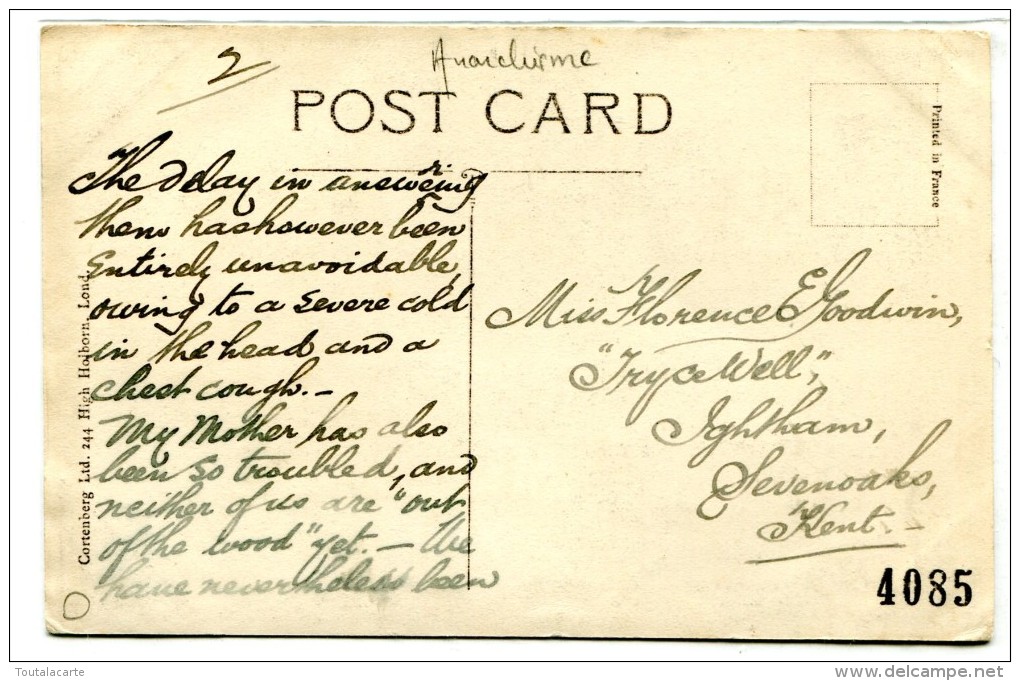 2
Anarchisme
POST CARD
Printed in France
The delay in answering
them has however been
Entirely unavoidable,
owing to a severe cold
in the head and a
chest cough.-
My Mother has also
been so troubled, and
neither of us are "out
of the wood" yet. — We
have nevertheless been
Cortenberg Ltd. 244 High Holborn, Lond.
Miss Florence E Goodwin,
"Tryce Well",
Ightham,
Sevenoaks,
Kent.-
4085
Toutalacarte
delcampe.net